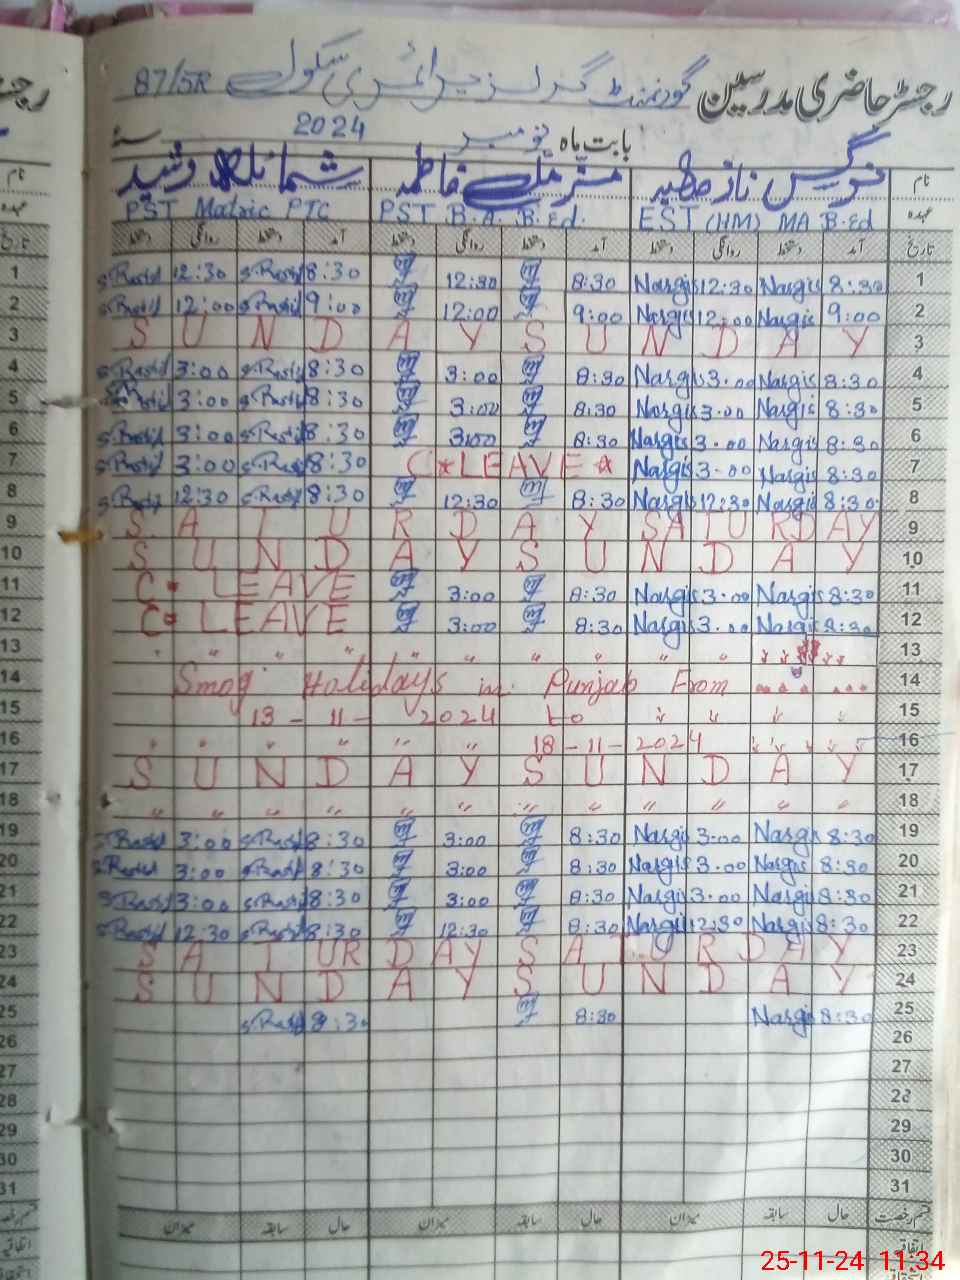 رجسٹر حاضری مدرسین گورنمنٹ گرلز پرائمری سکول 87/5R
بابت ماہ نومبر 2024 سنہ
نام نرگس ناز فاطمہ شمائلہ رشید
عہدہ EST (HM) MA B.Ed PST B.A. B.Ed. PST Matric PTC
تاریخ آمد دستخط روانگی دستخط آمد دستخط روانگی دستخط آمد دستخط روانگی دستخط
1 8:30 Nargis 12:30 Nargis 8:30 12:30 8:30 S.Rashid 12:30 S.Rashid
2 9:00 Nargis 12:00 Nargis 9:00 12:00 9:00 S.Rashid 12:00 S.Rashid
3 SUNDAY SUNDAY
4 8:30 Nargis 3:00 Nargis 8:30 3:00 8:30 S.Rashid 3:00 S.Rashid
5 8:30 Nargis 3:00 Nargis 8:30 3:00 8:30 S.Rashid 3:00 S.Rashid
6 8:30 Nargis 3:00 Nargis 8:30 3:00 8:30 S.Rashid 3:00 S.Rashid
7 8:30 Nargis 3:00 Nargis C*LEAVE* 8:30 S.Rashid 3:00 S.Rashid
8 8:30 Nargis 12:30 Nargis 8:30 12:30 8:30 S.Rashid 12:30 S.Rashid
9 SATURDAY SATURDAY
10 SUNDAY SUNDAY
11 8:30 Nargis 3:00 Nargis 8:30 3:00 C* LEAVE
12 8:30 Nargis 3:00 Nargis 8:30 3:00 C* LEAVE
13 " " " " " " " "
14 Smog Holidays in Punjab From
15 13-11-2024 to
16 18-11-2024
17 SUNDAY SUNDAY
18 " " " " " " " " " " " "
19 8:30 Nargis 3:00 Nargis 8:30 3:00 8:30 S.Rashid 3:00 S.Rashid
20 8:30 Nargis 3:00 Nargis 8:30 3:00 8:30 S.Rashid 3:00 S.Rashid
21 8:30 Nargis 3:00 Nargis 8:30 3:00 8:30 S.Rashid 3:00 S.Rashid
22 8:30 Nargis 12:30 Nargis 8:30 12:30 8:30 S.Rashid 12:30 S.Rashid
23 SATURDAY SATURDAY
24 SUNDAY SUNDAY
25 8:30 Nargis 8:30 8:30 S.Rashid
26
27
28
29
30
31
قسم رخصت حال سابقہ میزان حال سابقہ میزان حال سابقہ میزان
اتفاقیہ
25-11-24 11:34